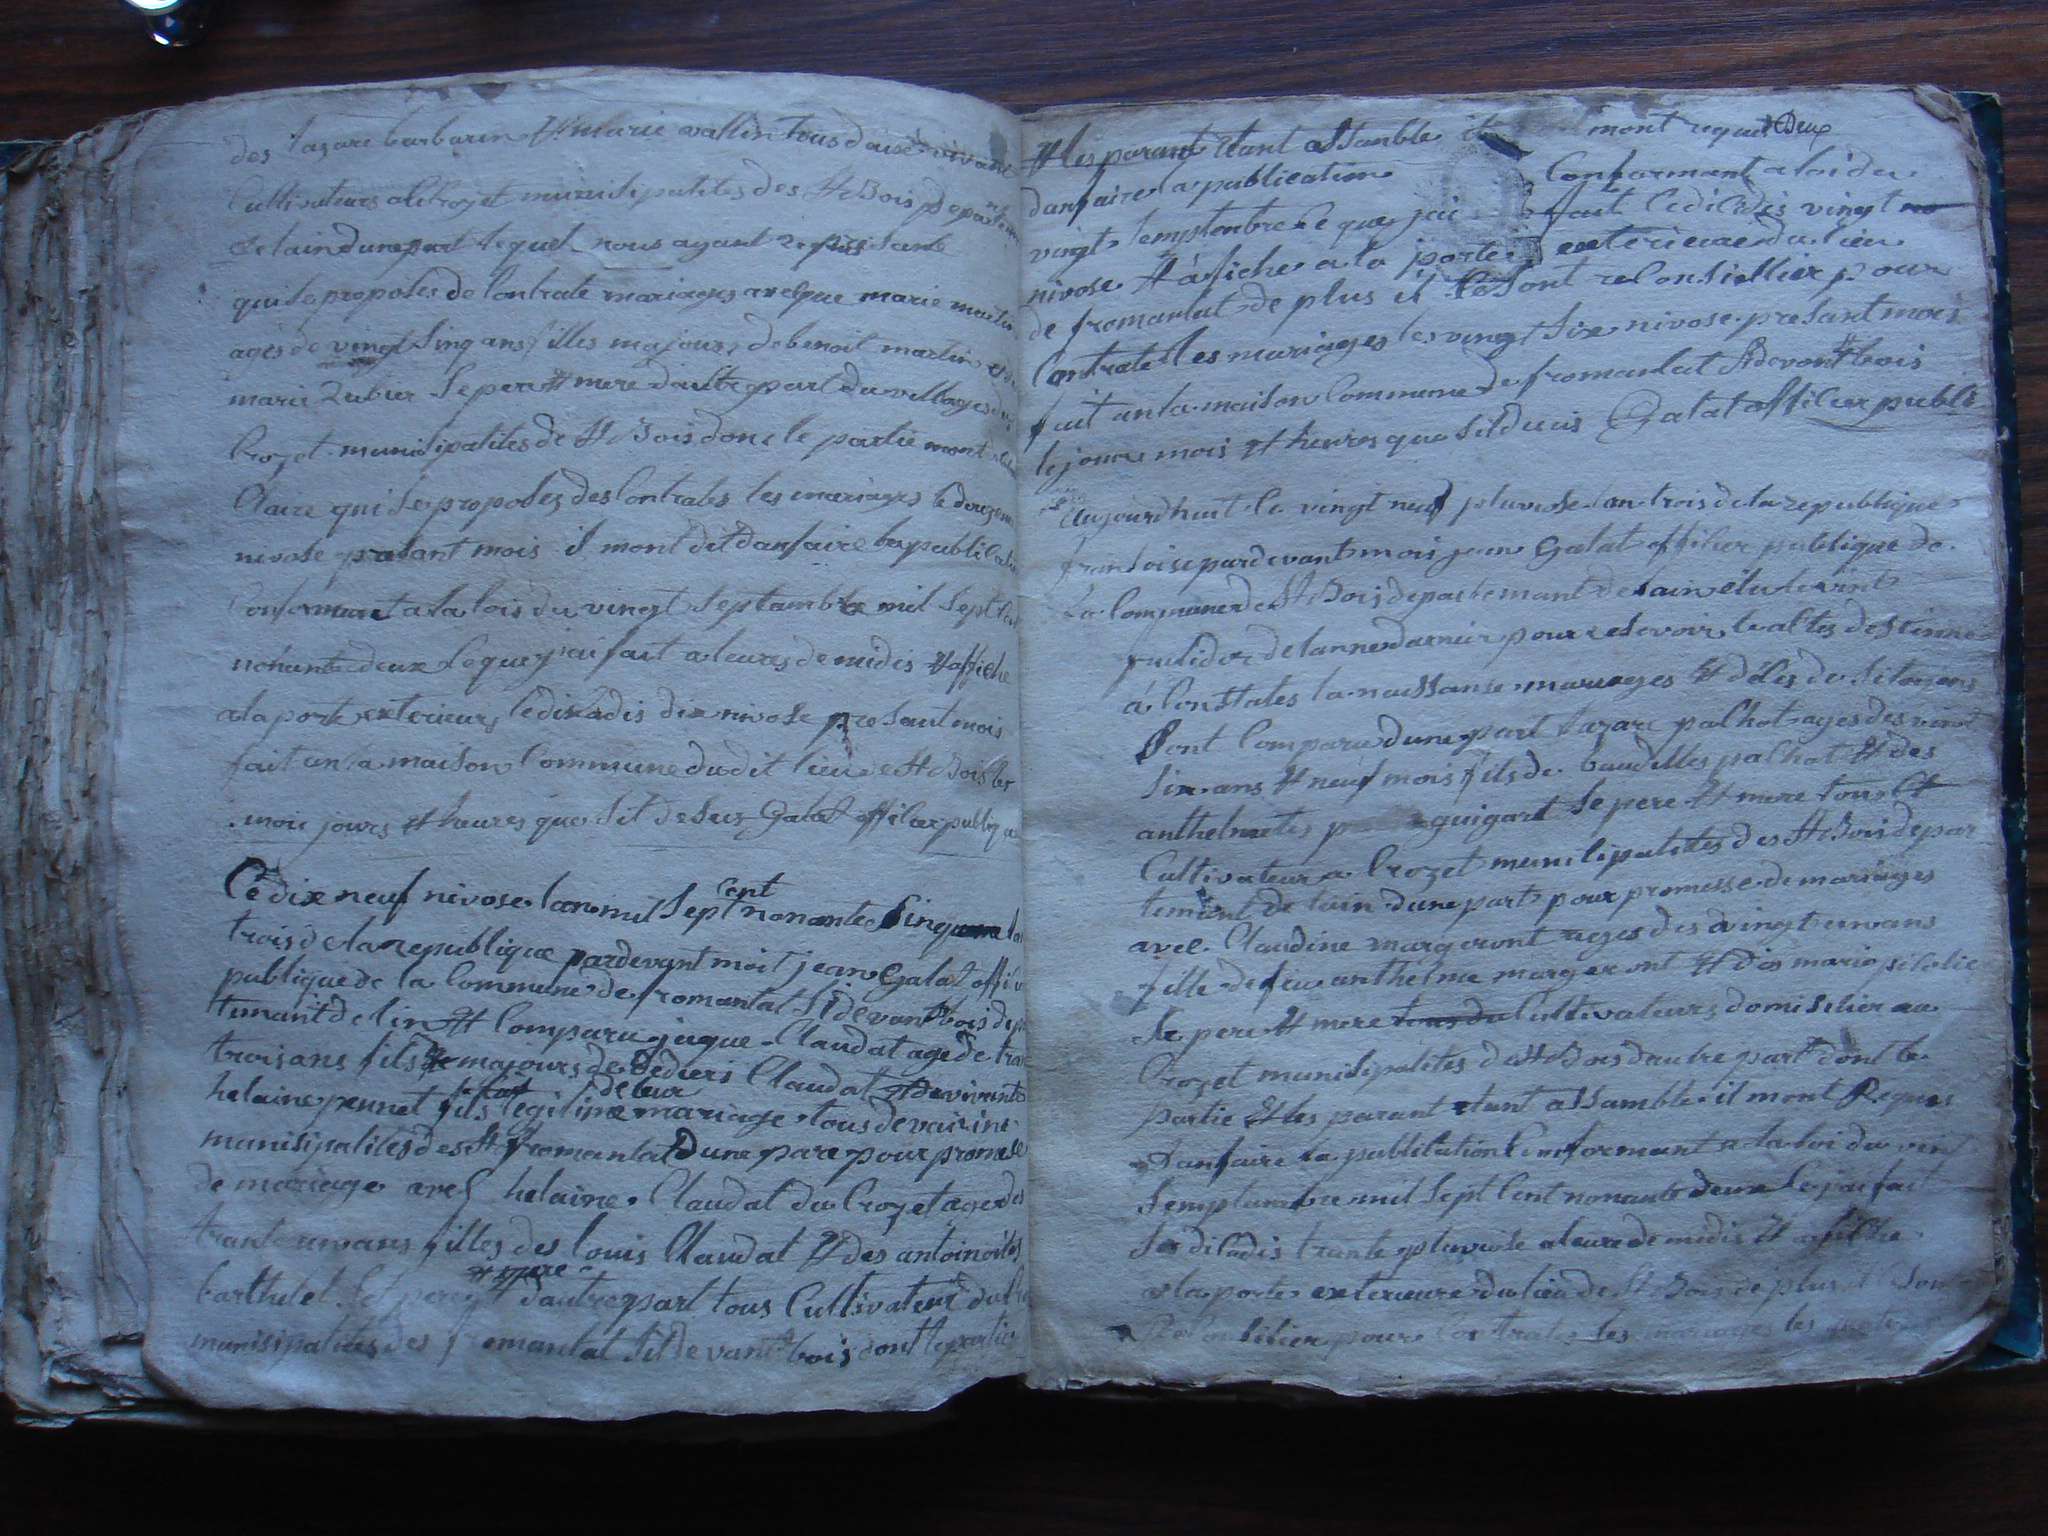 des lazare barbarin & marie vallin tous deux vivant
Cultivateurs a Crozet munisipalites des St Bois departem
de lain dune part lequel nous ayant represante
qui se proposes de Contrate mariages avelque marie martin
ages de vingt sinq ans filles majours de benoit martin et de
marie Zubier se pere & mere dautre part du villages du
Crozet munisipalites de St Bois donc le partie mont
Claire qui se proposes des Contrates les mariages le douze
nivose presant mois il mont dit danfaire la publication
Conformant a la lois du vingt septambre mil sept Cent
nonante deux le que jai fait a leurs de midis & affiche
a la porte exterieur ledicadis dix nivose presant mois
fait an la maison Commune dudit lieu de St Bois les
mois jours & heures que sit desus Galat officier publiq
Ce dix neuf nivose lan mil sept Cent nonante sinq lan
trois de la republique pardevant moit jean Galat offi
publique de la Commune de fromantat si devant St bois dep
temant de lin & Comparu jaque Claudat age de tran
trois ans fils majours de dediers Claudat & de vivante
helaine pennet fils legitime de leur mariage tous de vairine
munisipalites des fromantat Dune pare pour promesse
de mariage avec helaine Claudat du Crozet ages des
trante un ans filles des louis Claudat & des antoinoites
barthelet se pere & mere dautre part tous Cultivateur du Cro
munisipalites des fromantat sit devant St bois dont le partie
Deux
& les parant etant assamble il mont reques
danfaire la publication Conformant a loi du
vingt semptembre Ce que jai fait ledicadis vingt
nivose & afiche a la porte exterieure du lieu
de fromantat de plus il se sont reconsiellier pour
Contrate les mariages les vingt six nivose presant mois
fait an la maison Commune de fromantat si devant St bois
le jour mois & heures que sit ducis Galat officier publi
Aujourdhuit le vingt neuf pluviose lan trois de la republique
franSoise pardevant mois jean Galat officier publique de
La Commune de St Bois departemant de lain elu le vint
fruttidor de lanne darnier pour resevoir le altes destinne
a Constates la naissanse mariages & dèces de sitoyens
Sont Comparu dune part lazare palhot ages des vint
six ans & neuf mois fils de baudilles palhot & des
anthelmetes guigart se pere & mere tous
Cultivateur a Crozet munisipalites des St Bois depar
temant de lain dune part pour promesse de mariages
avec Claudine margeront ages des vingt un ans
fille de feu anthelme margeront & dès marie pilolie
se pere & mere tous du Cultivateurs domisilier au
Crozet munisipalites de St Bois dautre part dont le
partie & les parant etant assamble il mont Reques
danfaire la publication Conformant a la loi du vint
semptambre mil sept Cent nonante deux Ce jai fait
se dicadis trante pluviose a leure de midis & afiche
a la porte exterieure du lieu de St Bois de plus il se son
Reconsilier pour Contrate les mariages les